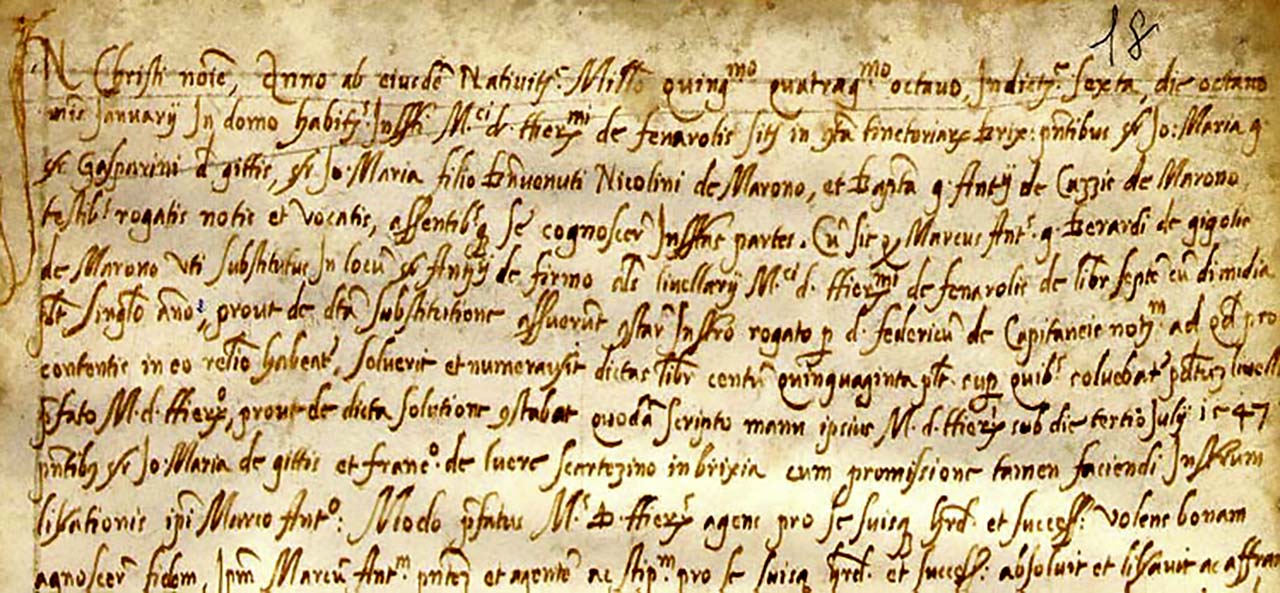 18
IN Christi noie, Anno ab eiusde Nativit. Millo quingmo quatragmo octavo, Indict. sexta, die octavo
mis Januarij In domo habit. Infssti M.ci d. Hiermi de fenarolis sit. in cta tinctoriar Brix: pntibus sr Jo: Maria q.
sr Gasparini d gittis, sr Jo: Maria filio Bnvenuti Nicolini de Marono, et Bapta q. Antij de Cazzis de Marono
testib. rogatis notis et vocatis, asserentib. se cognoscer Infsstas partes. Cu sit q Marcus Ant. q. Berardi de gigolis
de Marono uti substitutus In locu sr Antij de firmo ols livellarij M.ci d. Hiermi de fenarolis de libr septe cu dimidia
plt singlo anno, prout de dta substitutione asseruert costar Instro rogato p d. federicu de Capitaneis notm ad qd pro
contentis in eo relo habeat, solverit et numeraverit dictas libr centu quinquaginta plt. sup quib. solvebat pdtuz livell
pfato M. d. Hiero, prout de dicta solutione costabat quoda scripto manu ipsius M. d. Hier sub die tertio Julij 1547
pntibus sr Jo: Maria de gittis et franc.o de luere scartezino in brixia cum promissione tamen faciendi Instrum
librationis ipi Marco Anto: Modo pfatus M. D. Hier agens pro se suisq hred. et success: volens bonam
agnoscer fidem, Ipm Marcu Antm pntez et agente ac stipm pro se suisq hred. et success: absolvit et librauit ac affran